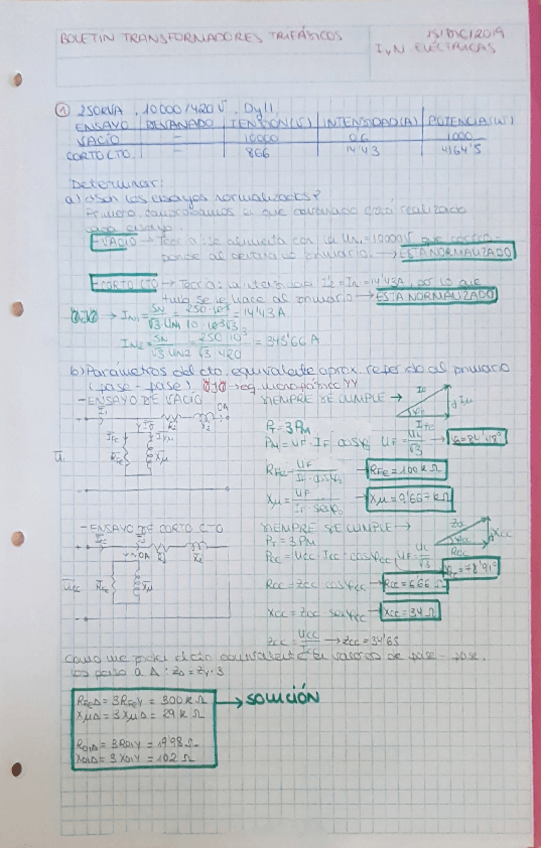 BOLETIN TRANSFORMADORES TRIFÁSICOS
15/DIC/2019
ELÉCTRICAS
① 250KVA, 10000/420V, Dy11
ENSAYO | DEVANADO | TENSIÓN(V) | INTENSIDAD(A) | POTENCIA(W)
VACÍO | — | 10000 | 0'6 | 1000
CORTO CTO. | — | 866 | 14'43 | 4164'5
Determinar:
a) ¿Son los ensayos normalizados?
Primero, comprobamos en que devanado está realizado
cada ensayo
-VACÍO → Teoría: se alimenta con la UN1=10000V que
ponde al primario. → ESTÁ NORMALIZADO
-CORTO CTO → Teoría: la intensidad = 14'43A, por lo que
se hace al primario → ESTÁ NORMALIZADO
OJO → IN1 = SN/√3 UN1 = 250·10³/10·10³√3 = 14'43A
IN2 = SN/√3 UN2 = 250·10³/√3 420 = 343'66 A
b) Parámetros del cto. equivalente aprox. referido al primario
(fase-fase) OJO → eq. monofásico YY
-ENSAYO DE VACÍO
SIEMPRE SE CUMPLE →
PT = 3PM
PM = UF · IF cosφ0
UF = UL/√3
RFe = UF/IF·cosφ0 → RFe = 100 kΩ
Xμ = UF/IF senφ0 → Xμ = 9'667 kΩ
-ENSAYO DE CORTO CTO
SIEMPRE SE CUMPLE →
PT = 3PM
PCC = UCC · ICC · cosφCC
UF = UL/√3
φCC = 78'91°
RCC = ZCC cosφCC → RCC = 6'66 Ω
XCC = ZCC senφCC → XCC = 34 Ω
ZCC = UCC/I → ZCC = 34'65
Como me piden el cto equivalente en valores de fase-fase.
los paso a Δ: ZΔ = ZY·3
RFeΔ = 3RFeY = 300 k Ω
XμΔ = 3XμΔ = 29 k Ω
→ SOLUCIÓN
= 19'98 Ω
= 102 Ω